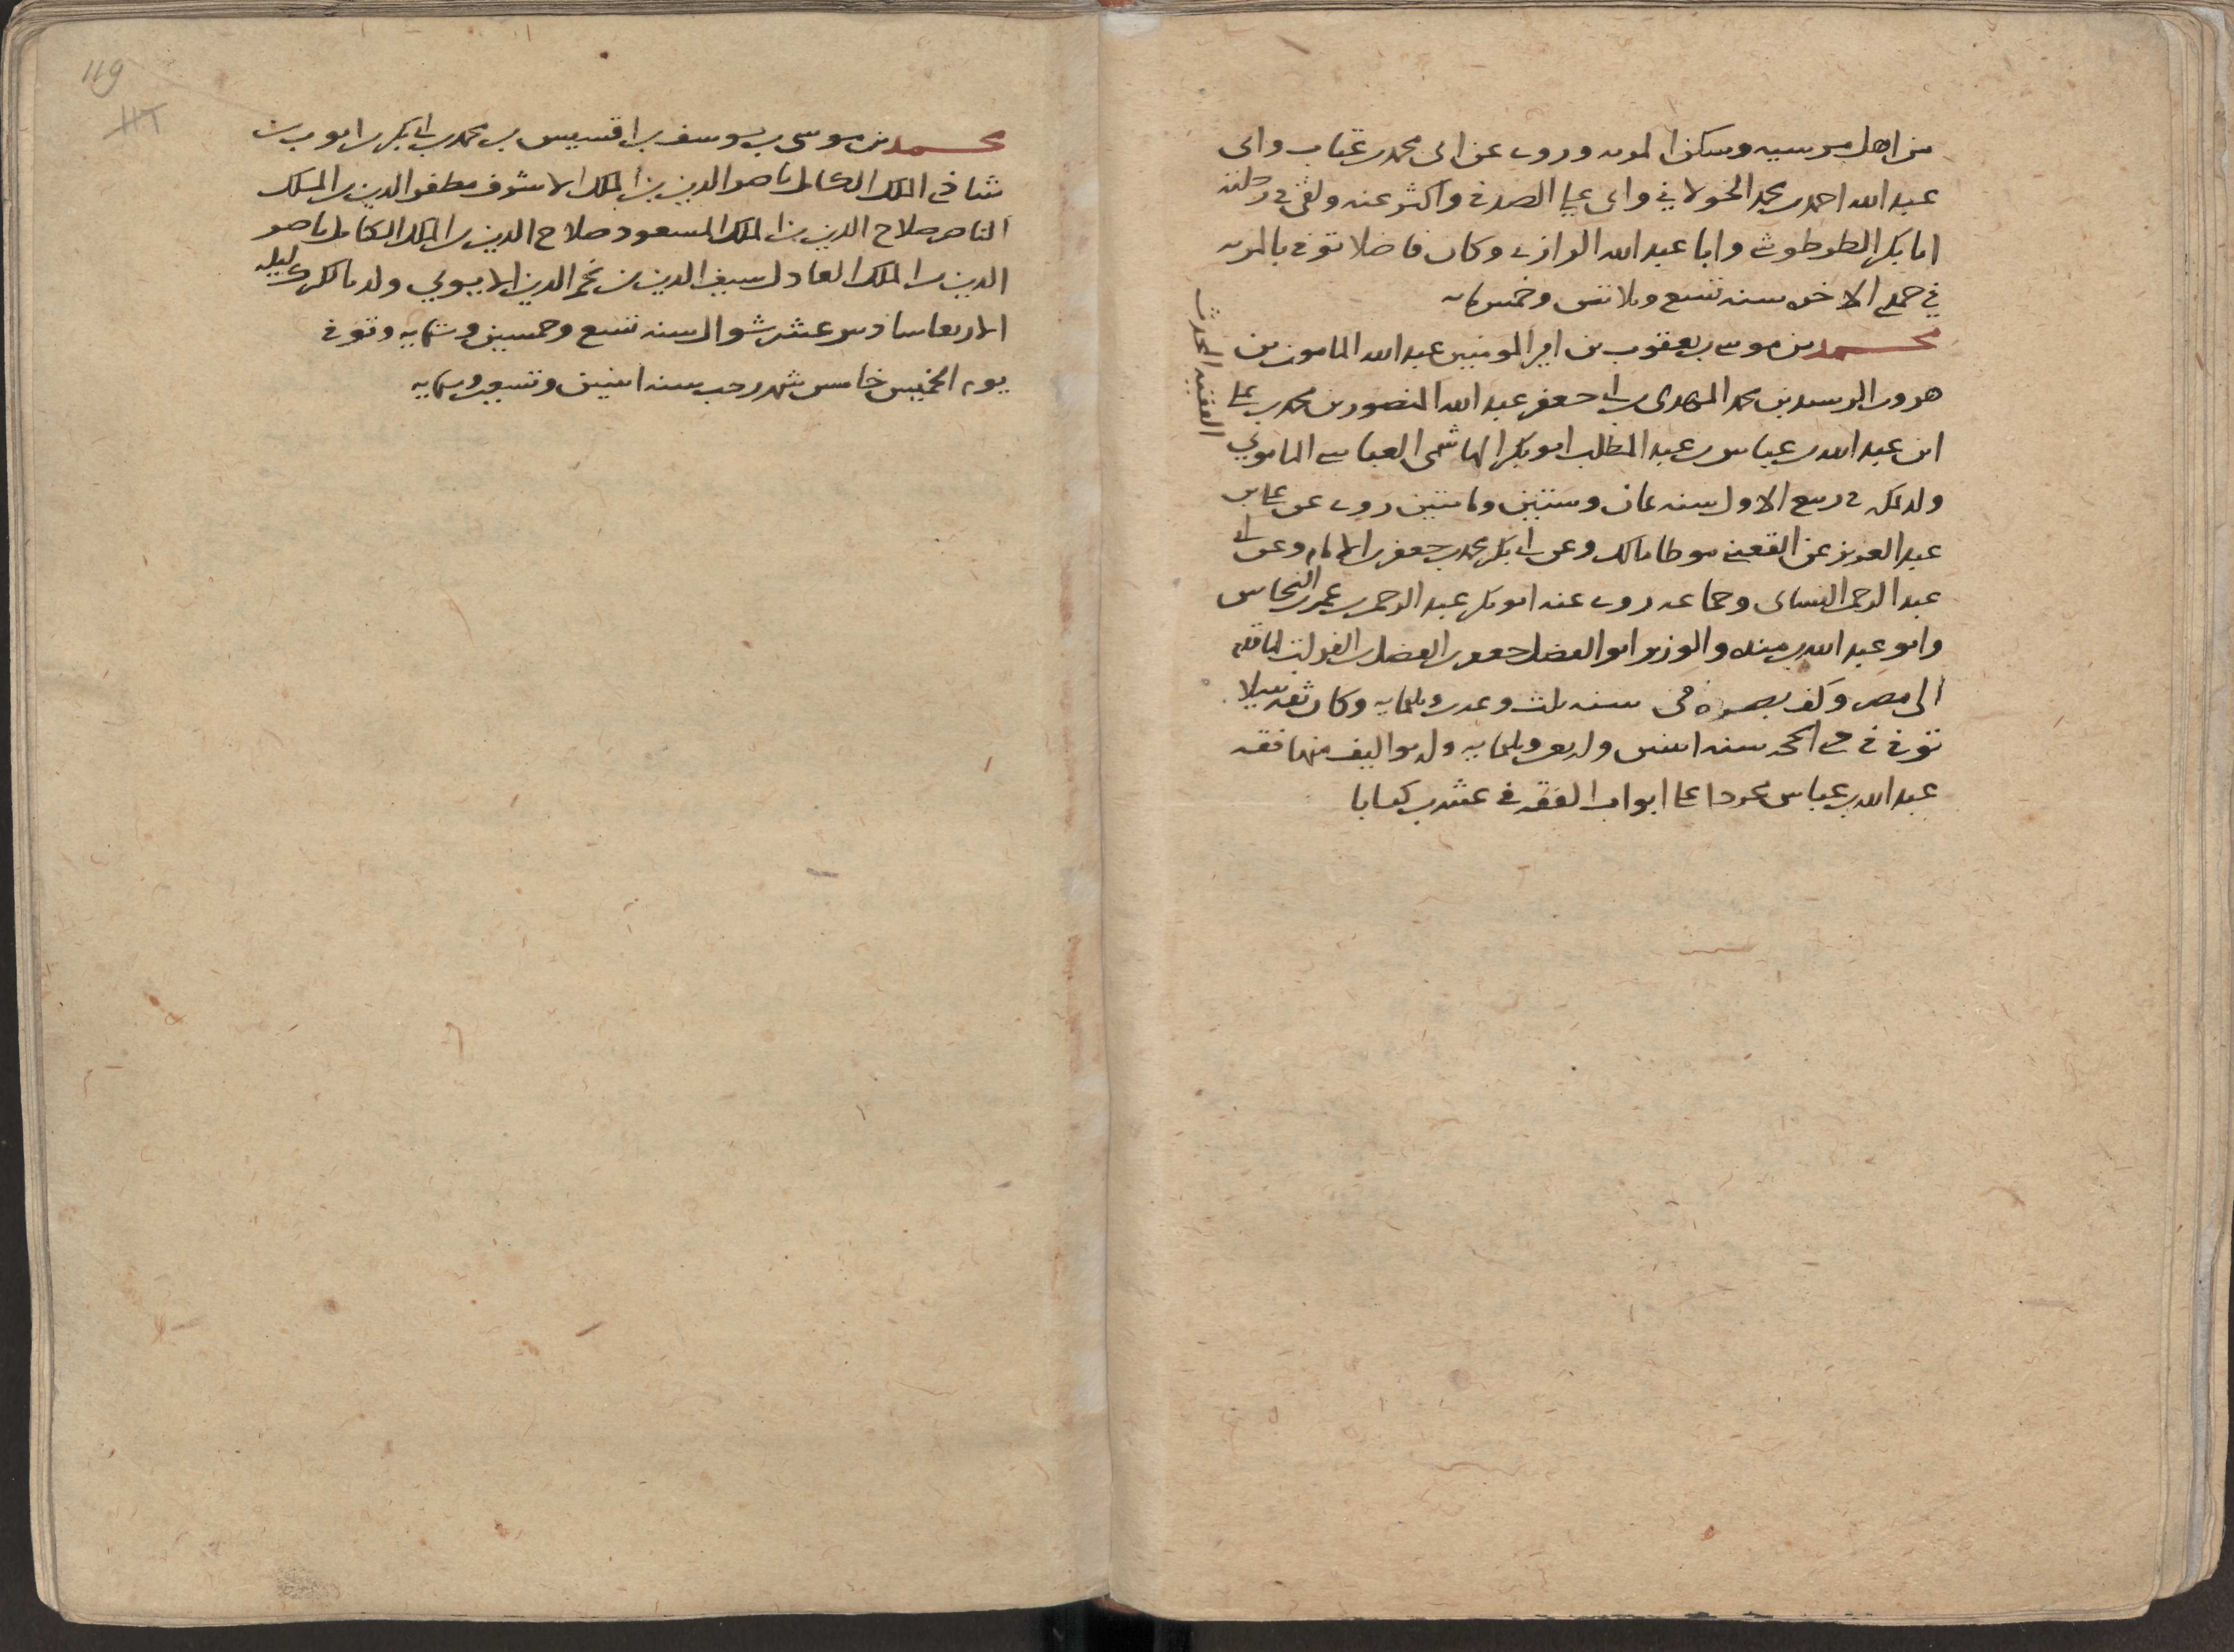 من اهل مرسيه وسكن المريه وروى عن ابى محمد بن عتاب وابى
عبد الله احمد بن محمد الخولاني وابى على الصدفى واكثر عنه ولقى فى رحلته
ابا بكر الطرطوشى وابا عبد الله الرازى وكان فاضلا توفى بالمريه
في جمادى الاخره سنه تسع وثلاثين وخمسمايه
محمد بن موسى بن يعقوب بن امير المومنين عبد الله المامون بن
هرون الرشيد بن محمد المهدى بن ابى جعفر عبد الله المنصور بن محمد بن على
ابن عبد الله بن عباس بن عبد المطلب ابو بكر الهاشمى العباسى المامونى
الفقيه المحدث
ولد بمكه فى ربيع الاول سنه ثمان وستين ومايتين روى عن على بن
عبد العزيز عن القعنبى موطا مالك وعن ابى بكر محمد بن جعفر بن الامام وعن ابى
عبد الرحمن النساى وجماعه روى عنه ابو بكر عبد الرحمن بن عمر بن النحاس
وابو عبد الله بن منده والوزير ابو الفضل جعفر بن الفضل بن الفرات
الى مصر وكف بصره فى سنه ثلث وعشرين وثلثمايه وكان ثقه نبيلا
توفى فى ذى الحجه سنه اثنين واربعين وثلثمايه وله تواليف منها فقه
عبد الله بن عباس مجردا على ابواب الفقه فى عشرين كتابا
119
117
محمد بن موسى بن يوسف بن اقسيس بن محمد بن ابى بكر بن ايوب بن
شافى الملك الكامل ناصر الدين بن الملك الاشرف مظفر الدين بن الملك
الناصر صلاح الدين بن الملك المسعود صلاح الدين بن الملك الكامل ناصر
الدين بن الملك العادل سيف الدين بن نجم الدين الايوبي ولد بالكرك ليله
الاربعا سادس عشر شوال سنه تسع وخمسين وستمايه وتوفى
يوم الخميس خامس شهر رجب سنه اثنين وتسعين وستمايه